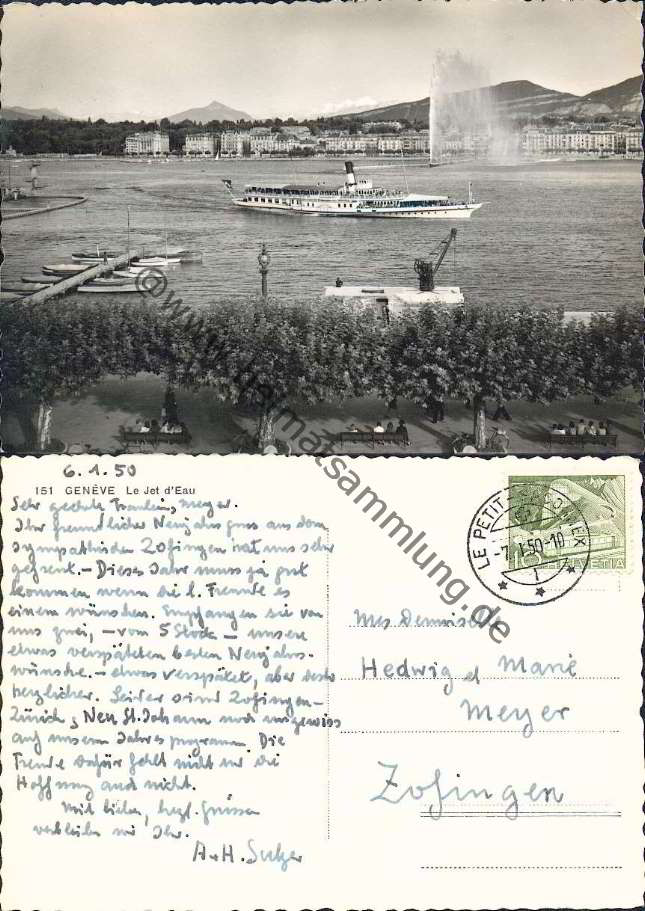 © www.heimatsammlung.de
6.1.50
151 GENÈVE Le Jet d'Eau
Sehr geehrte Fräulein, Meyer.
Ihr freundlicher Neujahrsgruss aus dem
sympathischen Zofingen hat uns sehr
gefreut. – Dieses Jahr muss ja gut
kommen wenn die l. Freunde es
einem wünschen. Empfangen sie von
uns zwei, – vom 5 Stock – unsere
etwas verspäteten besten Neujahrs-
wünsche. – etwas verspätet, aber desto
herzlicher. Leider sind Zofingen –
Zürich, Neu St. Johann noch ungewiss
auf unserm Jahresprogramm. Die
Freude dafür fehlt nicht und die
Hoffnung auch nicht.
Mit lieben, herzl. Grüssen
verbleiben wir Ihr.
A+H. Sulzer
LE PETIT-
-7.1.50-10
10 HELVETIA
Mes Demoiselles
Hedwig et Marie
Meyer
Zofingen